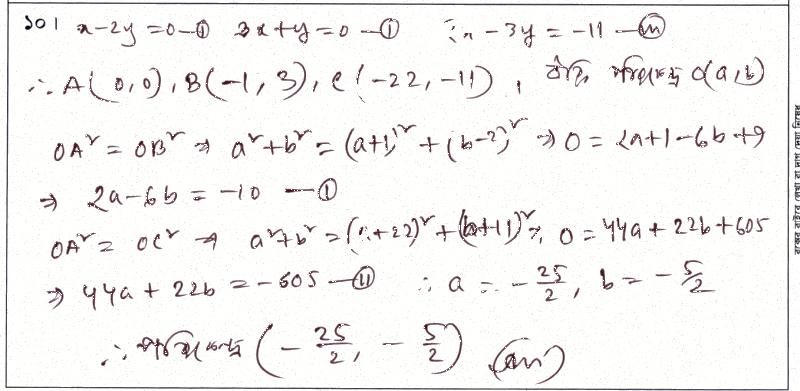 ১০। x-2y=0—① 3x+y=0—① x-3y=-11—(iii)
∴ A(0,0), B(-1,3), C(-22,-11), ধরি পরিকেন্দ্র O(a,b)
OA²=OB² ⇒ a²+b²=(a+1)²+(b-3)² ⇒ 0=2a+1-6b+9
⇒ 2a-6b=-10—①
OA²=OC² ⇒ a²+b²=(a+22)²+(b+11)² ⇒ 0=44a+22b+605
⇒ 44a+22b=-605—(ii) ∴ a=-25/2, b=-5/2
∴ পরিকেন্দ্র (-25/2, -5/2) (Ans)